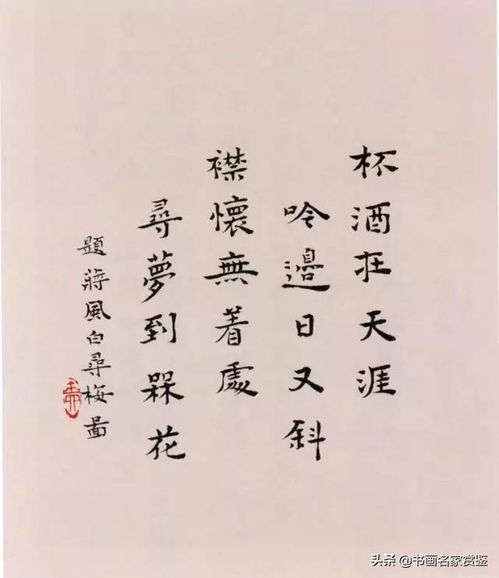 杯酒在天涯
吟邊日又斜
襟懷無着處
尋夢到槑花
題蔣風白尋梅圖
头条 @书画名家赏鉴